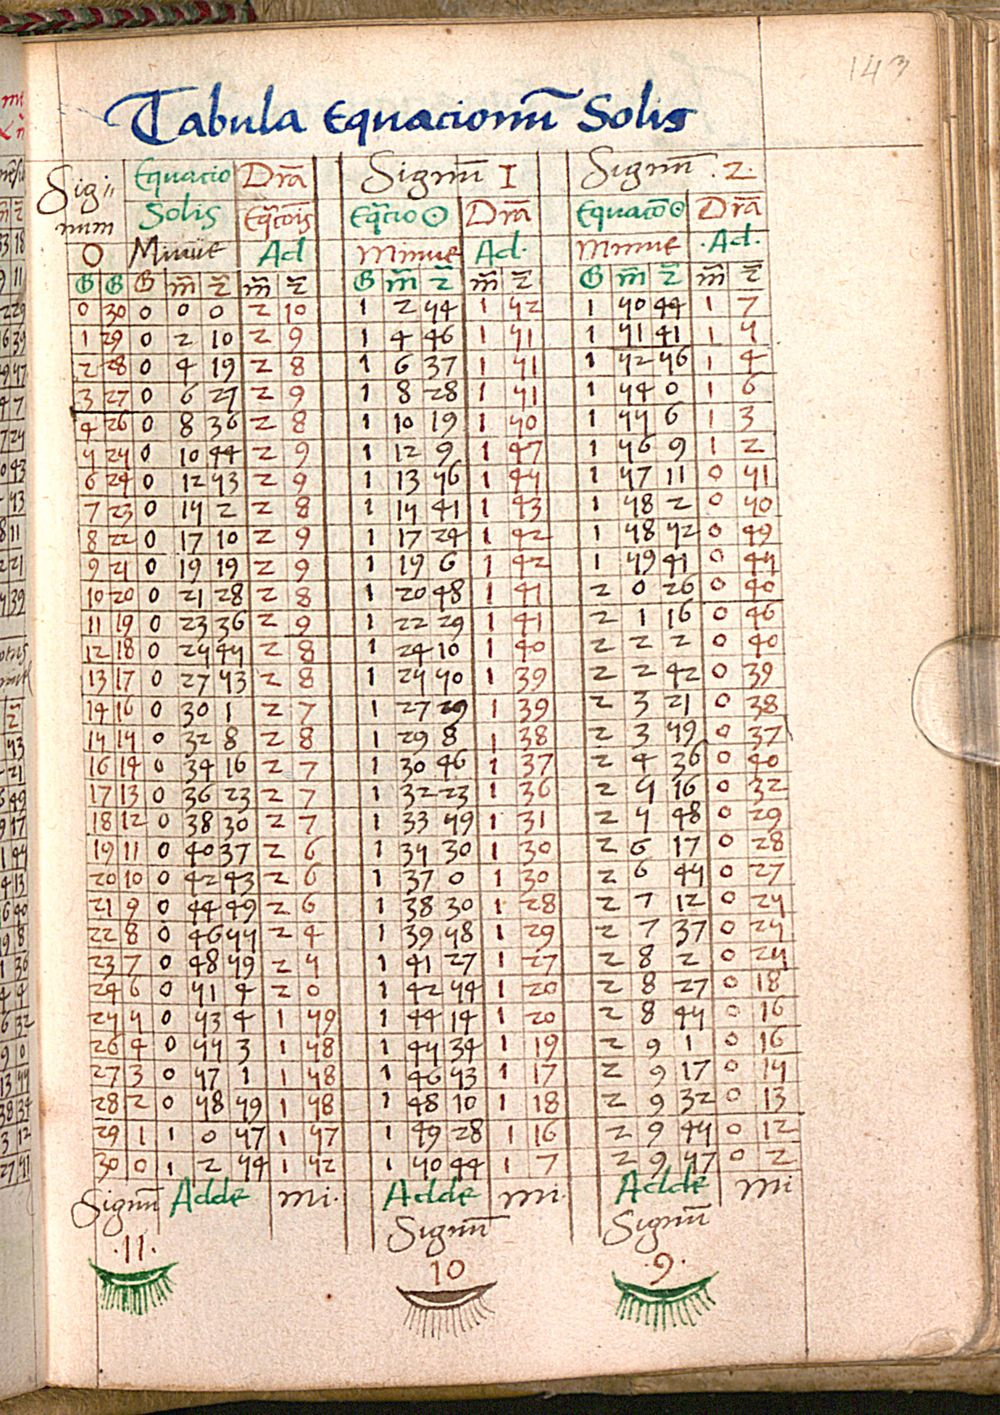 143
Tabula Equacionũ Solis
Sig〃 Equacio Drã̄ Signũ I Signũ .2.
num Solis Eq̃cõis Eq̃cio ☉ Drã̄ Equacõ ☉ Drã̄
0 Minue Ad Minue Ad. Minue .Ad.
G G G m̃ z̃ m̃ z̃ G m̃ z̃ m̃ z̃ G m̃ z̃ m̃ z̃
0 30 0 0 0 2 10 1 2 54 1 52 1 50 44 1 7
1 29 0 2 10 2 9 1 4 46 1 51 1 51 41 1 5
2 28 0 4 19 2 8 1 6 37 1 51 1 52 56 1 4
3 27 0 6 27 2 9 1 8 28 1 51 1 54 0 1 6
4 26 0 8 36 2 8 1 10 19 1 50 1 55 6 1 3
5 25 0 10 44 2 9 1 12 9 1 47 1 56 9 1 2
6 24 0 12 53 2 9 1 13 56 1 45 1 57 11 0 51
7 23 0 15 2 2 8 1 15 41 1 43 1 58 2 0 50
8 22 0 17 10 2 9 1 17 24 1 42 1 58 52 0 49
9 21 0 19 19 2 9 1 19 6 1 42 1 59 41 0 45
10 20 0 21 28 2 8 1 20 48 1 41 2 0 26 0 40
11 19 0 23 36 2 9 1 22 29 1 41 2 1 16 0 46
12 18 0 25 45 2 8 1 24 10 1 40 2 2 2 0 40
13 17 0 27 53 2 8 1 25 50 1 39 2 2 42 0 39
14 16 0 30 1 2 7 1 27 29 1 39 2 3 21 0 38
15 15 0 32 8 2 8 1 29 8 1 38 2 3 59 0 37
16 14 0 34 16 2 7 1 30 46 1 37 2 4 36 0 40
17 13 0 36 23 2 7 1 32 23 1 36 2 5 16 0 32
18 12 0 38 30 2 7 1 33 59 1 31 2 5 48 0 29
19 11 0 40 37 2 6 1 35 30 1 30 2 6 17 0 28
20 10 0 42 43 2 6 1 37 0 1 30 2 6 45 0 27
21 9 0 44 49 2 6 1 38 30 1 28 2 7 12 0 25
22 8 0 46 55 2 4 1 39 58 1 29 2 7 37 0 25
23 7 0 48 59 2 5 1 41 27 1 27 2 8 2 0 25
24 6 0 51 4 2 0 1 42 54 1 20 2 8 27 0 18
25 5 0 53 4 1 59 1 44 14 1 20 2 8 45 0 16
26 4 0 55 3 1 58 1 45 34 1 19 2 9 1 0 16
27 3 0 57 1 1 58 1 46 53 1 17 2 9 17 0 15
28 2 0 58 59 1 58 1 48 10 1 18 2 9 32 0 13
29 1 1 0 57 1 57 1 49 28 1 16 2 9 45 0 12
30 0 1 2 54 1 52 1 50 44 1 7 2 9 57 0 2
Signũ Adde mi. Adde mi. Adde mi
.11. Signũ Signũ
10 .9.